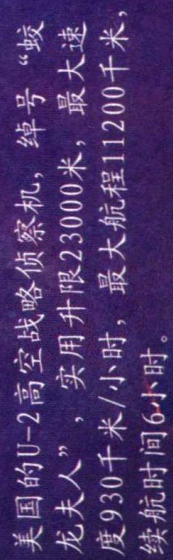 美国的U-2高空战略侦察机，绰号“蛟
龙夫人”，实用升限23000米，最大速
度930千米/小时，最大航程11200千米，
续航时间6小时。